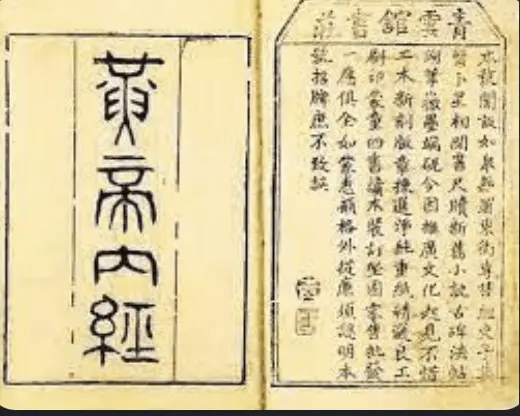 青雲館書莊
本號開設如皋縣東街專售經史子集
醫卜星相閒書尺牘新舊小說古碑法帖
湖筆徽墨端硯今因推廣文化起見不惜
工本新刻徽章揀選淨純重紙精良工
刷印蒙童四書讀本裝訂堅固零售批發
一應俱全如蒙惠顧格外從廉須認明本
號招牌庶不致誤
黃帝內經